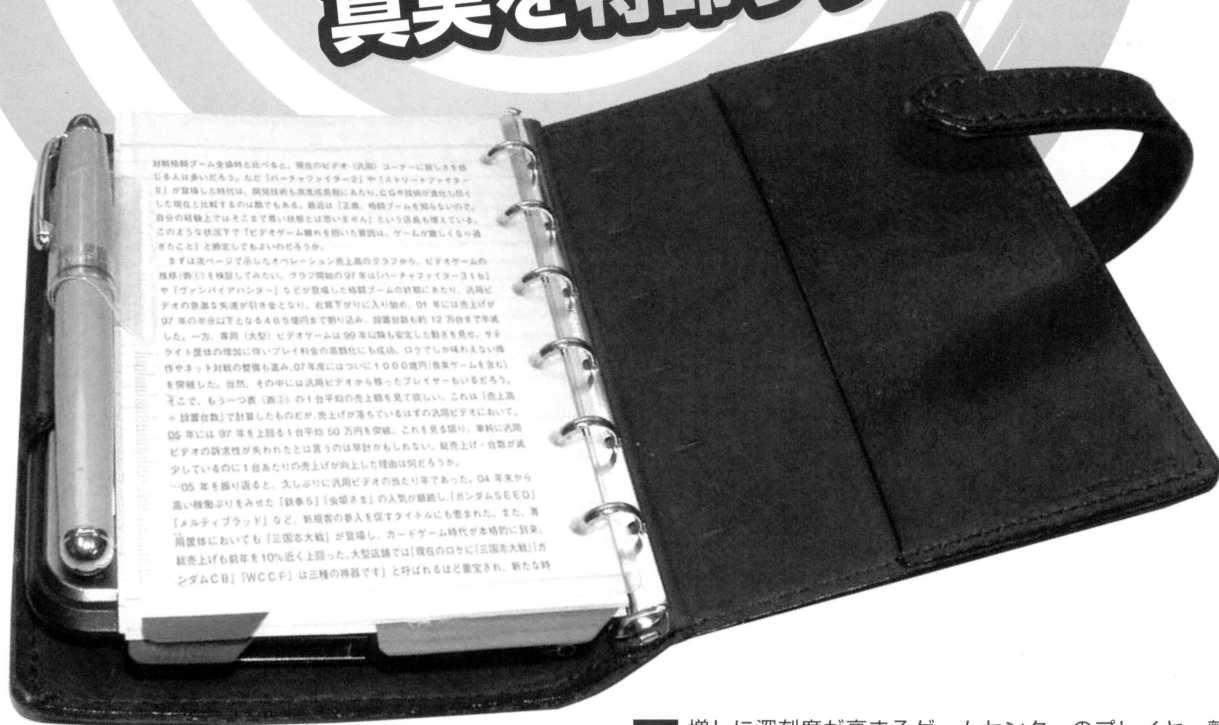 真実を
対戦格闘ブーム全盛時と比べると、現在のビデオ(汎用)コーナーに寂しさを感
じる人は多いだろう。ただ「バーチャファイター2」や「ストリートファイター
II」が登場した時代は、開発技術も高度成長期にあたり、CGや技術が進化し尽く
した現在と比較するのは酷でもある。最近は「正直、格闘ブームを知らないので、
自分の経験上ではそこまで悪い状態とは思いません」という店長も増えている。
このような状況下で「ビデオゲーム離れを招いた要因は、ゲームが難しくなり過
ぎたこと」と断定してもよいのだろうか。
まずは次ページで示したオペレーション売上高のグラフから、ビデオゲームの
推移(表①)を検証してみたい。グラフ開始の97年は「バーチャファイター3tb」
や「ヴァンパイアハンター」などが登場した格闘ブームの終期にあたり、汎用ビ
デオの急激な失速が引き金となり、右肩下がりに入り始め、01年には売上げが
97年の半分以下となる465億円まで割り込み、設置台数も約12万台まで半減
した。一方、専用(大型)ビデオゲームは99年以降も安定した動きを見せ、サテ
ライト筐体の増加に伴いプレイ料金の高額化にも成功。ロケでしか味わえない操
作やネット対戦の整備も進み、07年度にはついに1000億円(音楽ゲームを含む)
を突破した。当然、その中には汎用ビデオから移ったプレイヤーもいるだろう。
そこで、もう一つ表(表②)の1台平均の売上額を見て欲しい。これは「売上高
÷設置台数」で計算したものだが、売上げが落ちているはずの汎用ビデオにおいて、
05年には97年を上回る1台平均50万円を突破。これを見る限り、単純に汎用
ビデオの訴求性が失われたとは言うのは早計かもしれない。総売上げ・台数が減
少しているのに1台あたりの売上げが向上した理由は何だろうか。
05年を振り返ると、久しぶりに汎用ビデオの当たり年であった。04年末から
高い稼働ぶりをみせた「鉄拳5」「虫姫さま」の人気が継続し、「ガンダムSEED」
「メルティブラッド」など、新規客の参入を促すタイトルにも恵まれた。また、専
用筐体においても「三国志大戦」が登場し、カードゲーム時代が本格的に到来。
総売上げも前年を10%近く上回った。大型店舗では「現在のロケに「三国志大戦」「ガ
ンダムCB」「WCCF」は三種の神器です」と呼ばれるほど重宝され、新たな時
増しに深刻度が高するゲームセンターのプレイヤー